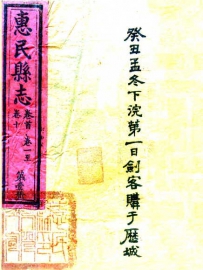 癸丑孟冬下浣第一日劍客購于歷城
惠民縣志
卷首 卷一至
卷十